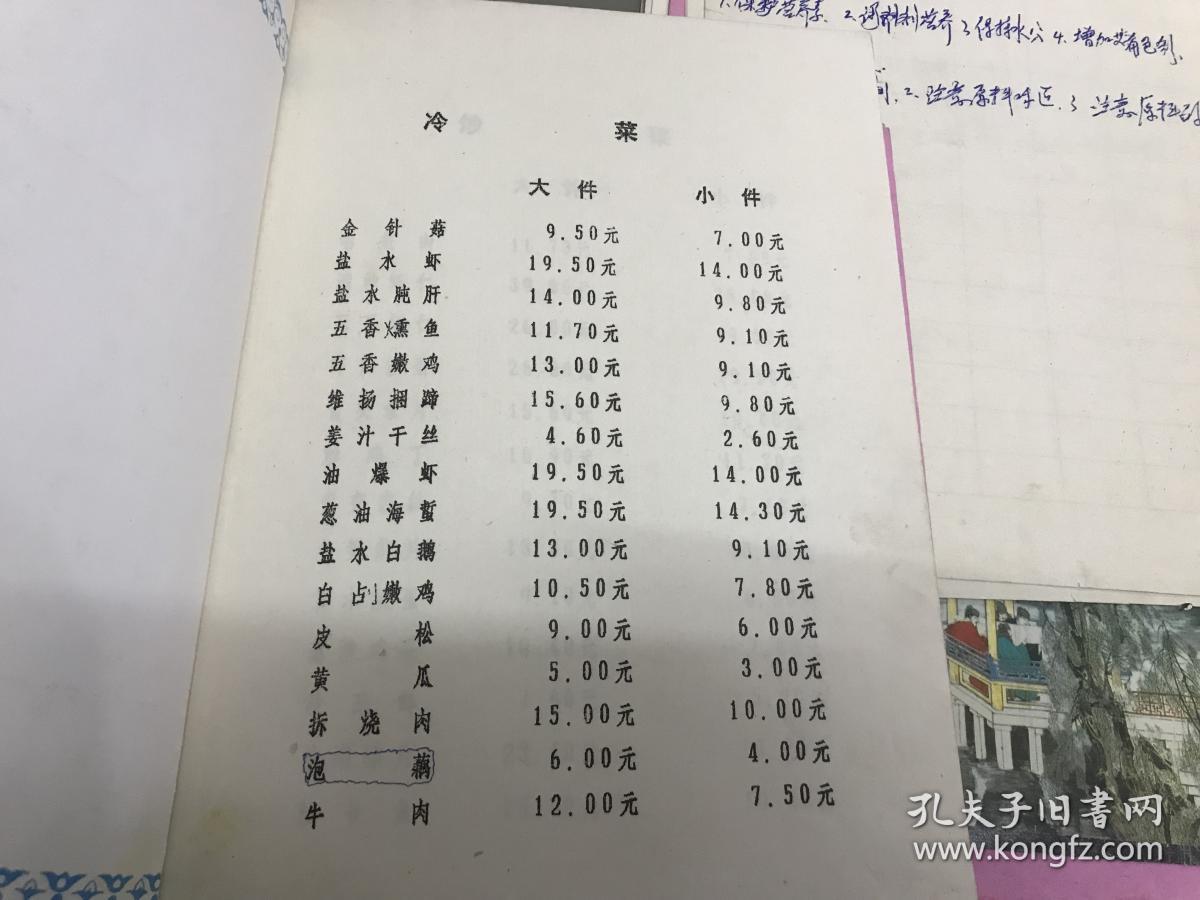 1.保护营养素. 2.调料利营养 3.保持水分 4.增加菜肴色彩.
冷 菜
大件 小件
金针菇 9.50元 7.00元
盐水虾 19.50元 14.00元
盐水肫肝 14.00元 9.80元
五香燻鱼 11.70元 9.10元
五香嫩鸡 13.00元 9.10元
维扬捆蹄 15.60元 9.80元
姜汁干丝 4.60元 2.60元
油爆虾 19.50元 14.00元
葱油海蜇 19.50元 14.30元
盐水白鹅 13.00元 9.10元
白占刂嫩鸡 10.50元 7.80元
皮松 9.00元 6.00元
黄瓜 5.00元 3.00元
拆烧肉 15.00元 10.00元
泡藕 6.00元 4.00元
牛肉 12.00元 7.50元
孔夫子旧书网
www.kongfz.com